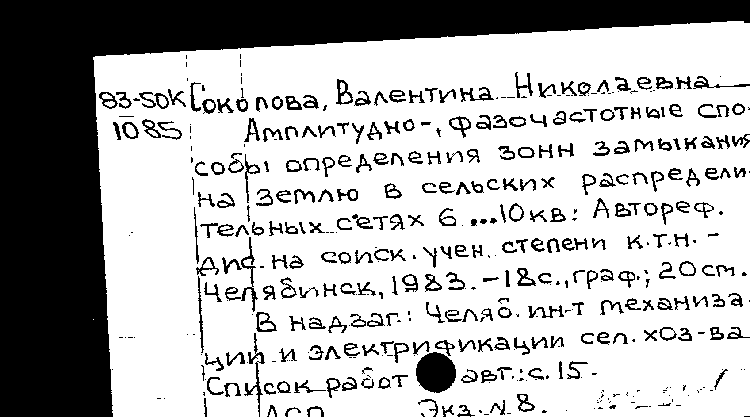 83-50К Соколова, Валентина Николаевна.
1085 Амплитудно-, фазочастотные спо-
собы определения зонн замыкания
на землю в сельских распредели-
тельных сетях 6...10кв: Автореф.
дис. на соиск. учен. степени к.т.н. -
Челябинск, 1983. - 18 с., граф.; 20 см.
В надзаг.: Челяб. ин-т механиза-
ции и электрификации сел. хоз-ва
Список работ авт.: с. 15.
ДСП Экз. N 8.